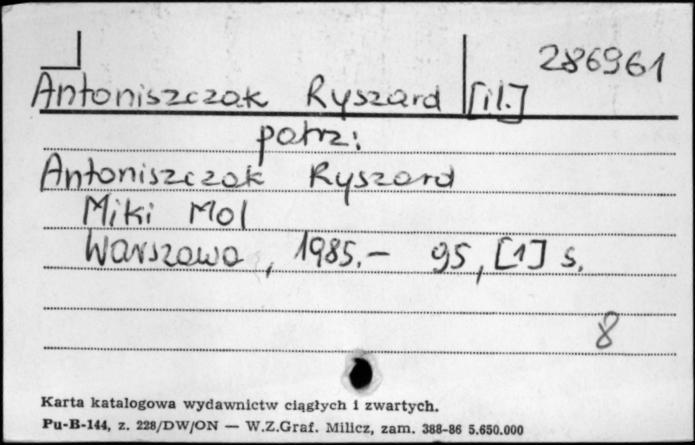 286961
Antoniszczak Ryszard [il.]
patrz:
Antoniszczak Ryszard
Miki Mol
Warszawa, 1985.- 95, [1] s.
8
Karta katalogowa wydawnictw ciągłych i zwartych.
Pu-B-144, z. 228/DW/ON — W.Z.Graf. Milicz, zam. 388-86 5.650.000